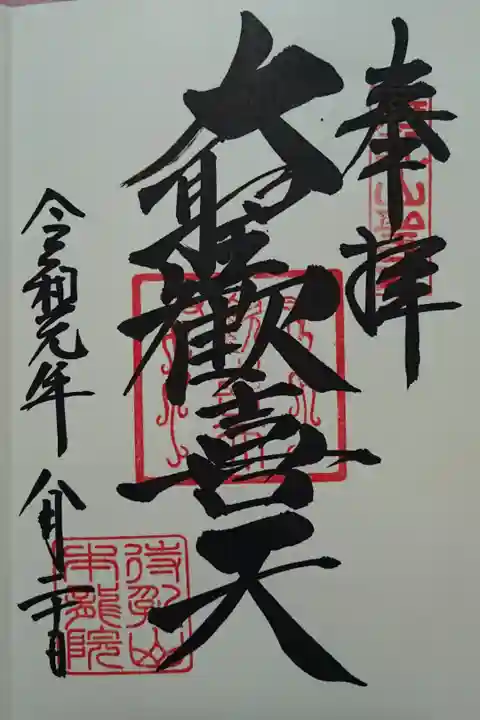 奉拝
大聖歓喜天
令和元年八月二十日
待乳山
本龍院